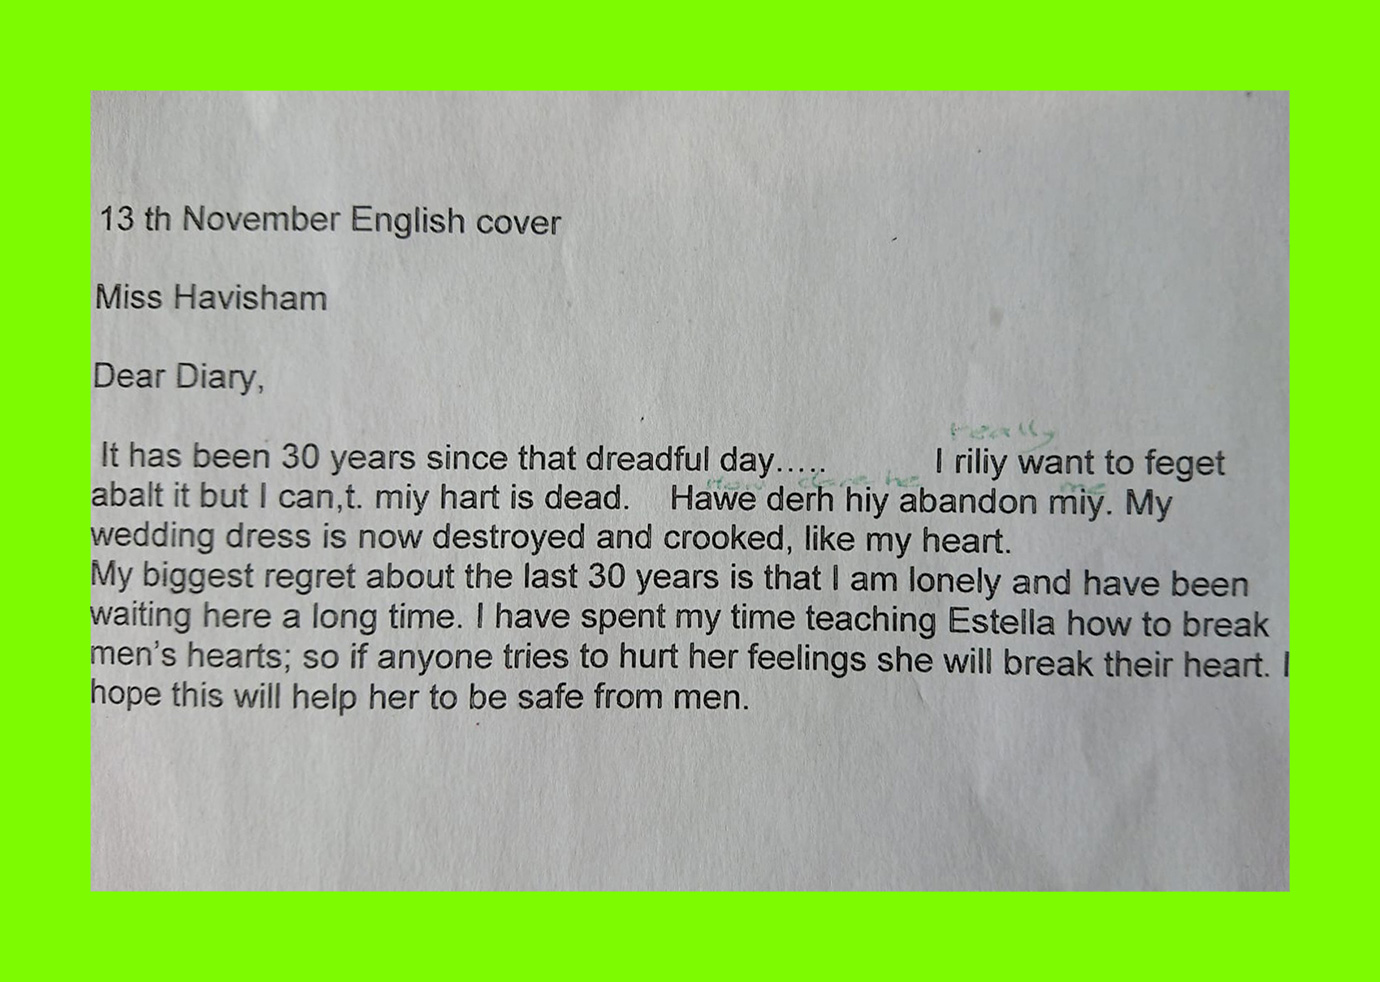 13 th November English cover
Miss Havisham
Dear Diary,
really
It has been 30 years since that dreadful day..... I riliy want to feget
How dare he me
abalt it but I can,t. miy hart is dead. Hawe derh hiy abandon miy. My
wedding dress is now destroyed and crooked, like my heart.
My biggest regret about the last 30 years is that I am lonely and have been
waiting here a long time. I have spent my time teaching Estella how to break
men's hearts; so if anyone tries to hurt her feelings she will break their heart. I
hope this will help her to be safe from men.